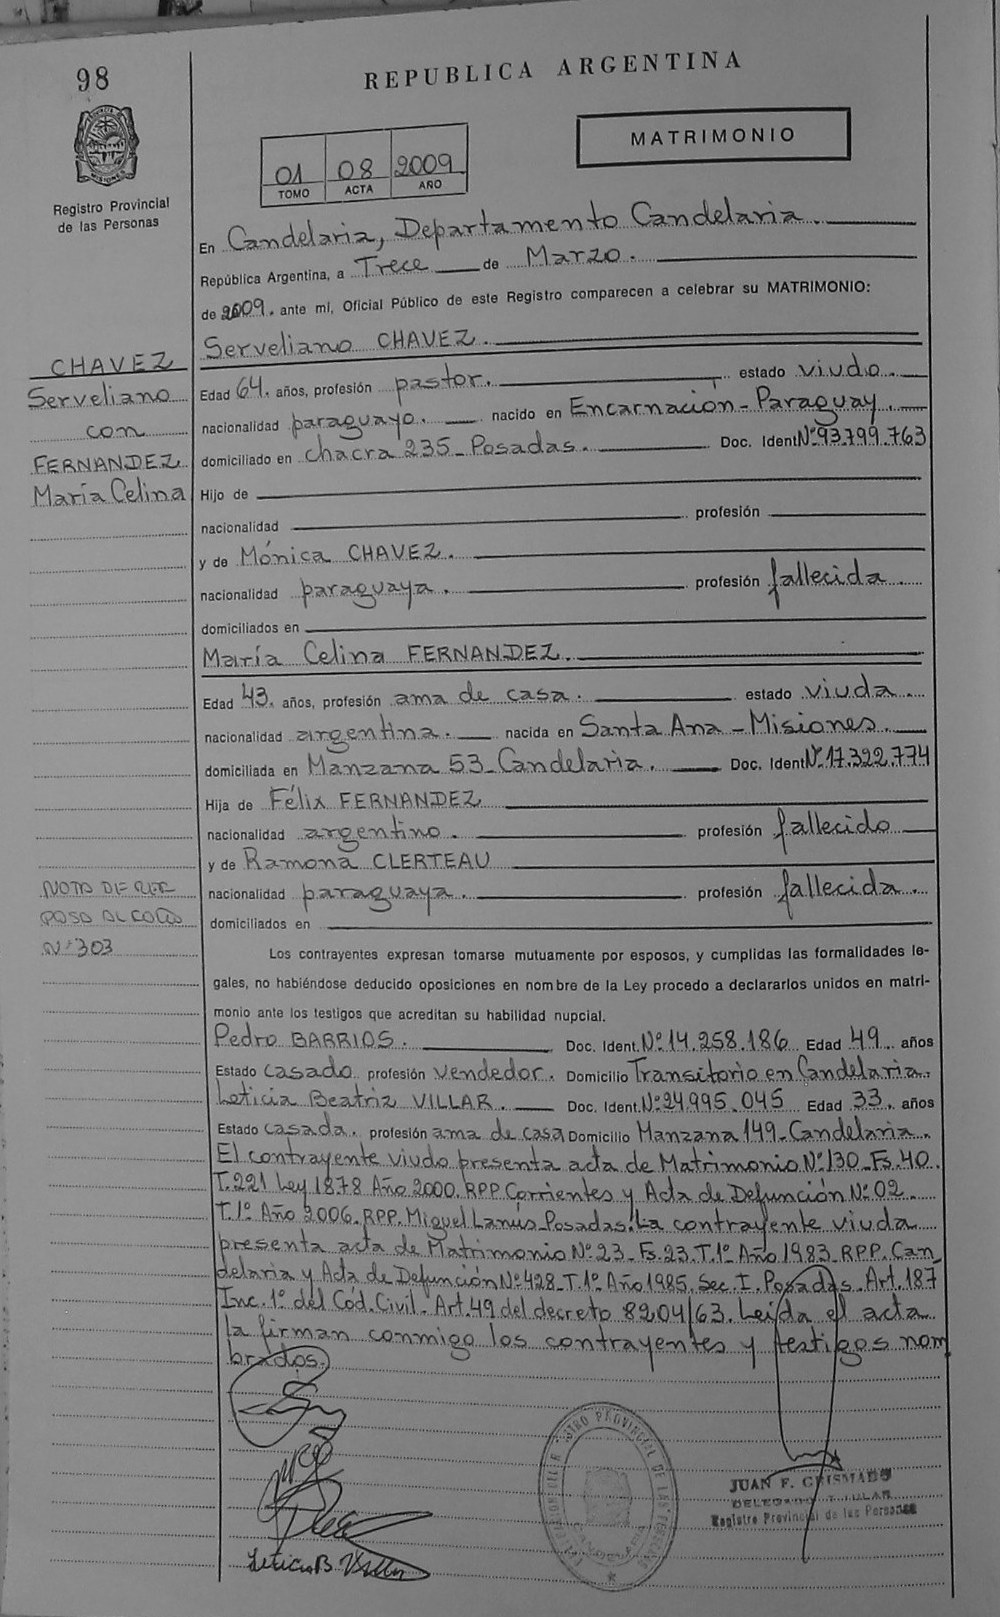 98
REPUBLICA ARGENTINA
MATRIMONIO
01 08 2009
TOMO ACTA AÑO
Registro Provincial
de las Personas
En Candelaria, Departamento Candelaria.
República Argentina, a Trece de Marzo.
de 2009. ante mí, Oficial Público de este Registro comparecen a celebrar su MATRIMONIO:
CHAVEZ
Serveliano
con
FERNANDEZ
María Celina
Serveliano CHAVEZ.
Edad 64. años, profesión pastor. estado viudo.
nacionalidad paraguayo. nacido en Encarnación - Paraguay.
domiciliado en chacra 235 - Posadas. Doc. Ident Nº 93.799.763
Hijo de
nacionalidad profesión
y de Mónica CHAVEZ.
nacionalidad paraguaya. profesión fallecida.
domiciliados en
María Celina FERNANDEZ.
Edad 43. años, profesión ama de casa. estado viuda.
nacionalidad argentina. nacida en Santa Ana - Misiones.
domiciliada en Manzana 53 - Candelaria. Doc. Ident Nº 17.322.774
Hija de Félix FERNANDEZ
nacionalidad argentino. profesión fallecido
y de Ramona CLERTEAU
nacionalidad paraguaya. profesión fallecida.
domiciliados en
NOTA DE REF
Nº 303
Los contrayentes expresan tomarse mutuamente por esposos, y cumplidas las formalidades le-
gales, no habiéndose deducido oposiciones en nombre de la Ley procedo a declararlos unidos en matri-
monio ante los testigos que acreditan su habilidad nupcial.
Pedro BARRIOS. Doc. Ident. Nº 14.258.186 Edad 49 años
Estado casado profesión vendedor. Domicilio Transitorio en Candelaria.
Leticia Beatriz VILLAR. Doc. Ident. Nº 24.995.045 Edad 33. años
Estado casada. profesión ama de casa Domicilio Manzana 149 - Candelaria.
El contrayente viudo presenta acta de Matrimonio Nº 130 - Fs. 40.
T. 221 Ley 1878 Año 2000. RPP. Corrientes y Acta de Defunción Nº 02.
T. 1º Año 2006. RPP. Miguel Lanús - Posadas. La contrayente viuda
presenta acta de Matrimonio Nº 23 - Fs. 23. T. 1º Año 1983. RPP. Can-
delaria y Acta de Defunción Nº 428 - T. 1º Año 1985. Sec. I. Posadas. Art. 187
Inc. 1º del Cód. Civil - Art. 49 del decreto 8204/63. Leída el acta
la firman conmigo los contrayentes y testigos nom
brados.
Leticia B. Villar
JUAN F. GRISMADO
DELEGADO TITULAR
Registro Provincial de las Personas